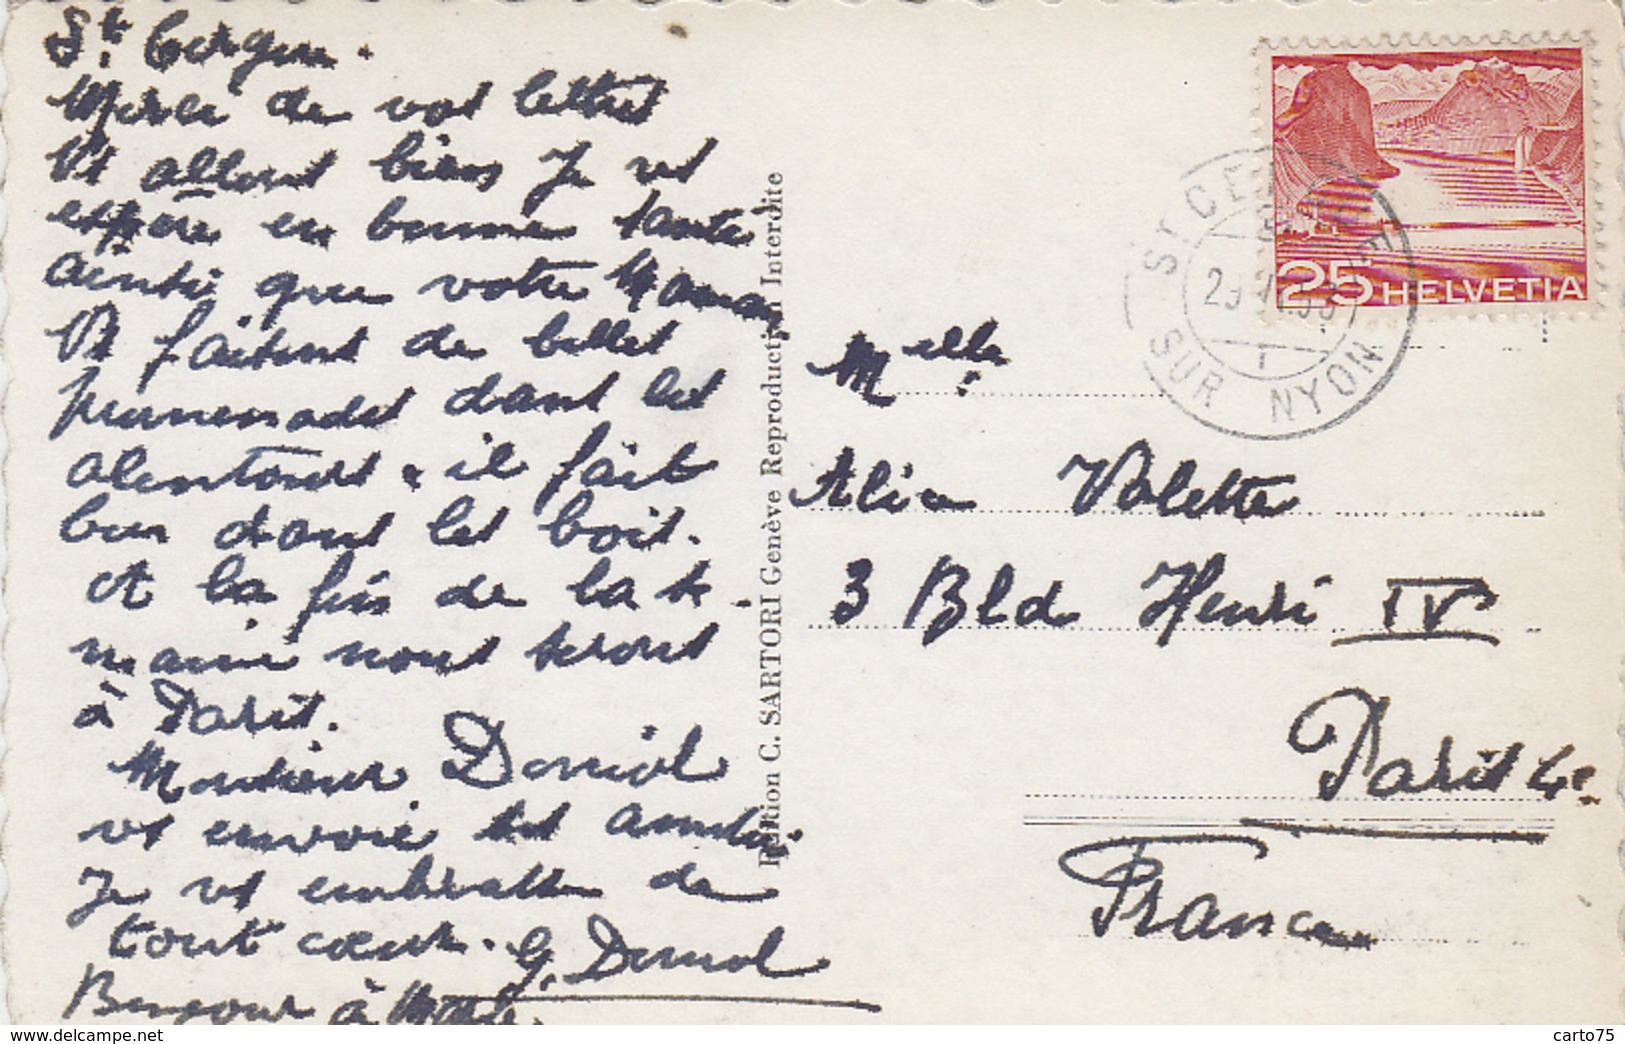 St Cergue.
Merci de vos lettres
Ns allons bien Je vs
espère en bonne santé
ainsi que votre Maman
Ns faisons de belles
promenades dans les
alentours & il fait
bon dans les bois.
A la fin de la se-
maine nous serons
à Paris.
Monsieur Doniol
vs envoie ses amitiés
Je vs embrasse de
tout cœur. G. Doniol
Bonjour à
Edition C. SARTORI Genève Reproduction Interdite
ST CERGUE
SUR NYON
25 HELVETIA
Melle
Alice Valette
3 Bld Henri IV
Paris 4e.
France
delcampe.net
carto75